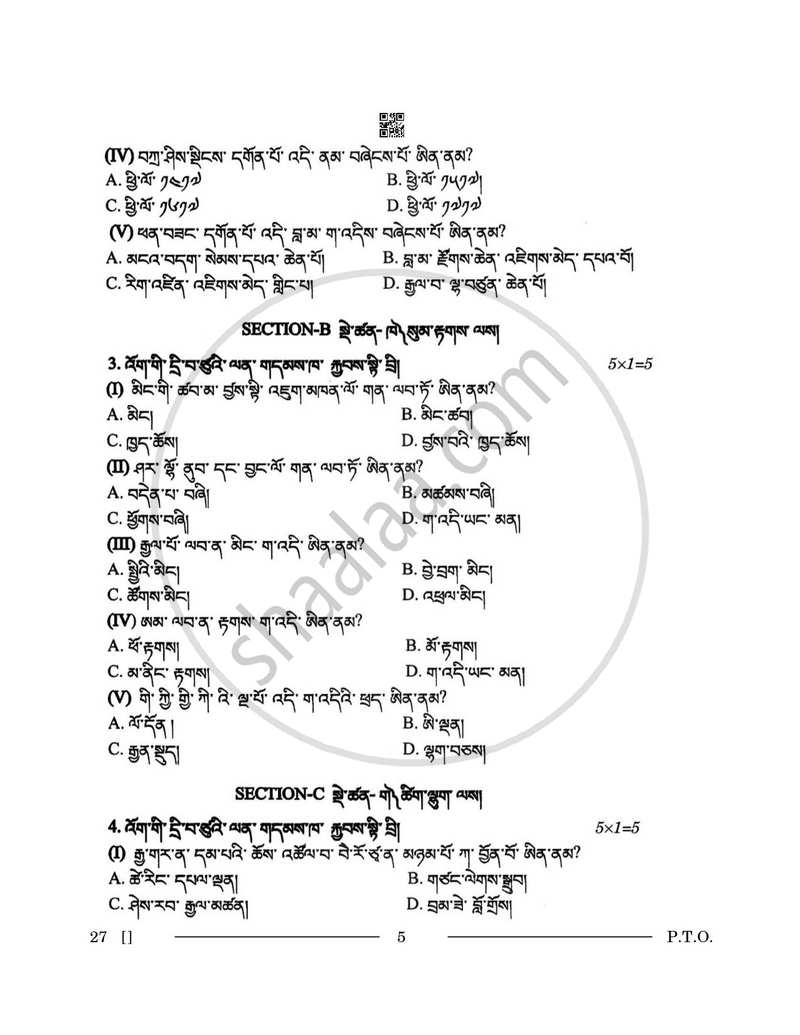 (IV) བཀྲ་ཤིས་སྡིངས་ དགོན་པོ་ འདི་ ནམ་ བཞེངས་པོ་ ཨིན་ནམ?
A. ཕྱི་ལོ་ ༡༤༡༧ B. ཕྱི་ལོ་ ༡༥༡༧།
C. ཕྱི་ལོ་ ༡༦༡༧ D. ཕྱི་ལོ་ ༡༧༡༧
(V) ཕན་བཟང་ དགོན་པོ་ འདི་ བླ་མ་ ག་འདིས་ བཞེངས་པོ་ ཨིན་ནམ?
A. མངའ་བདག་ སེམས་དཔའ་ ཆེན་པོ། B. བླ་མ་ རྫོགས་ཆེན་ འཇིགས་མེད་ དཔའ་བོ།
C. རིག་འཛིན་ འཇིགས་མེད་ གླིང་པ། D. རྒྱལ་བ་ ལྷ་བཙུན་ ཆེན་པོ།
SECTION-B སྡེ་ཚན- ཁེ༽ སུམ་རྟགས་ ལས།
3. འོག་གི་ དྲི་བ་ཙུའི་ ལན་ གདམས་ཁ་ རྐྱབས་སྟི་ བྲི། 5×1=5
(I) མིང་གི་ ཚབ་མ་ བྱས་སྟི་ འཇུག་མཁན་ལོ་ གན་ ལབ་ཏོ་ ཨིན་ནམ?
A. མིང། B. མིང་ཚབ།
C. ཁྱད་ཆོས། D. བྱས་བའི་ ཁྱད་ཆོས།
(II) ཤར་ ལྷོ་ ནུབ་ དང་ བྱང་ལོ་ གན་ ལབ་ཏོ་ ཨིན་ནམ?
A. བདེན་པ་ བཞི། B. མཚམས་བཞི།
C. ཕྱོགས་བཞི། D. ག་འདི་ཡང་ མན།
(III) རྒྱལ་པོ་ ལབ་ན་ མིང་ ག་འདི་ ཨིན་ནམ?
A. སྤྱིའི་མིང། B. བྱེ་བྲག་ མིང།
C. ཚོགས་མིང། D. འཕྲལ་མིང།
(IV) ཨམ་ ལབ་ན་ རྟགས་ ག་འདི་ ཨིན་ནམ?
A. ཕོ་རྟགས། B. མོ་རྟགས།
C. མ་ནིང་ རྟགས། D. ག་འདི་ཡང་ མན།
(V) གི་ ཀྱི་ གྱི་ ཀི་ འི་ ལྔ་པོ་ འདི་ ག་འདིའི་ ཕྲད་ ཨིན་ནམ?
A. ལོ་དོན། B. ཨི་ལྡན།
C. རྒྱན་སྡུད། D. ལྷག་བཅས།
SECTION-C སྡེ་ཚན- ག༽ ཚིག་ལྷུག་ ལས།
4. འོག་གི་ དྲི་བ་ཙུའི་ ལན་ གདམས་ཁ་ རྐྱབས་སྟི་ བྲི། 5×1=5
(I) རྒྱ་གར་ན་ དམ་པའི་ ཆོས་ འཚོལ་བ་ བེ་རོ་ཙ་ན་ མཉམ་པོ་ ཀ་ བྱོན་བོ་ ཨིན་ནམ?
A. ཚེ་རིང་ དཔལ་ལྡན། B. གཙང་ལེགས་སྒྲུབ།
C. ཤེས་རབ་ རྒྱལ་མཚན། D. བྲམ་ཟེ་ བློ་གྲོས།
27 [] 5 P.T.O.
shaalaa.com